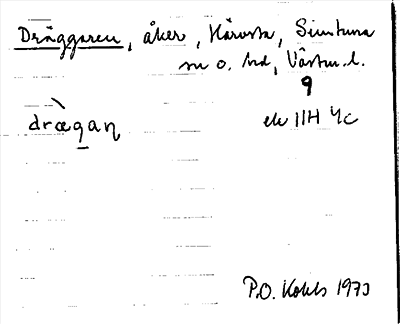 Dräggaren, åker, Härvsta, Simtuna
sn o. hd, Västm. l.
9
dræ̀gan̩
ek 11H 4c
P.O. Kohls 1973